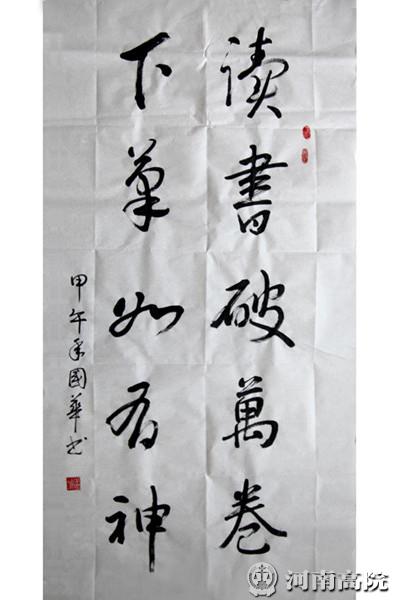 讀書破萬卷
下筆如有神
甲午年國華书
河南高院